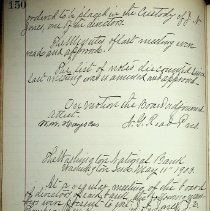 150
ordered to be placed in the custody of J. W.
Jones, one of the directors.
The Minutes of last meeting were
read and approved.
The list of notes discounted since
last meeting was examined and approved.
On motion the Board adjourned
Attest
H. G. Read Pres
The Washington National Bank
Washington Ind. May 11th 1903.
At a regular meeting of the board
of directors of said bank the following
were present to wit: